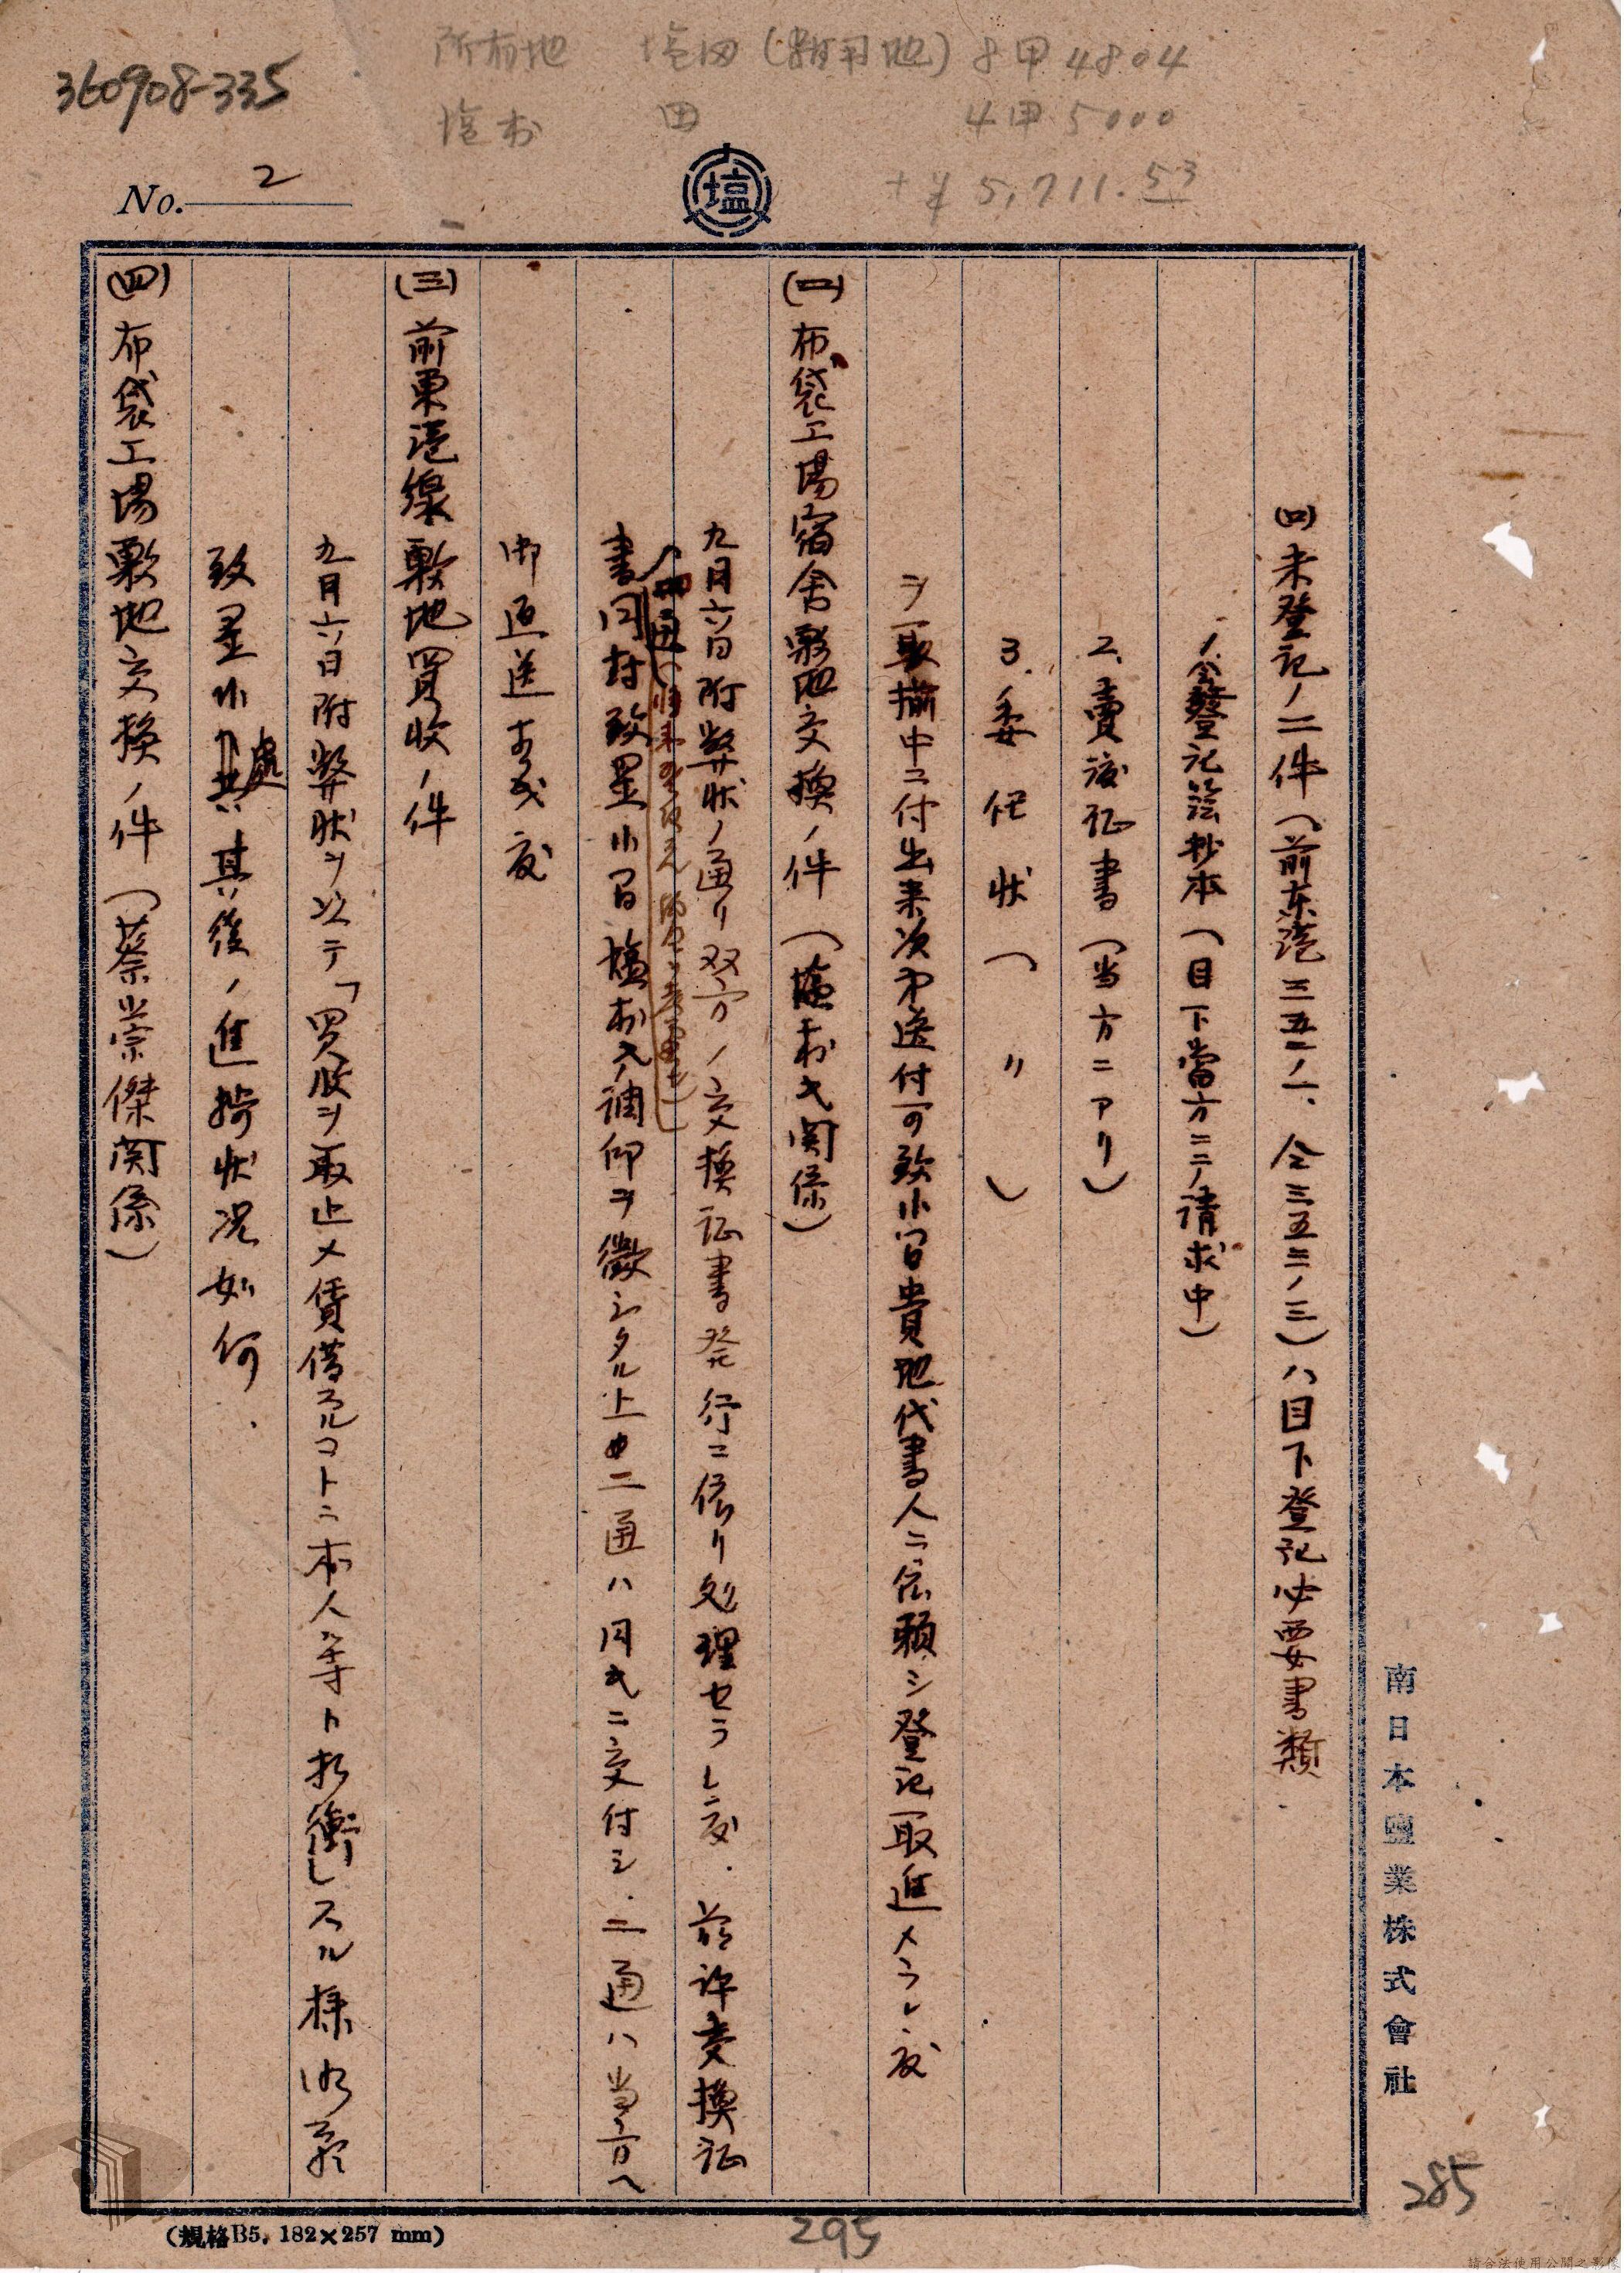 360908-335
所有地 塩田(専用地) 8甲4804
塩村 田 4甲5000
+¥5,711.53
No. 2
塩
(ロ)未登記ノ二件(前東港三五二ノ一、仝三五三ノ三)ハ目下登記必要書類
1.登記簿抄本(目下當方ニテ請求中)
2.賣渡証書(当方ニアリ)
3.委任状(〃)
ヲ取揃中ニ付出来次第送付可致候間貴地代書人ニ依頼シ登記取進メラレ度
(二)布袋工場宿舎敷地交換ノ件(塩村氏関係)
九月六日附弊状ノ通リ双方ノ交換証書発行ニ依リ処理セラレ度.前許交換証
書(四通)同封致置候間塩村氏ノ調印ヲ徴シタル上中二通ハ同氏ニ交付シ.二通ハ当方ヘ
御返送相成度
(三)前東港線敷地買收ノ件
九月六日附弊状ヲ以テ「買收ヲ取止メ賃借スルコトニ本人等ト折衝」スル様御願
致置候處其後ノ進捗状况如何.
(四)布袋工場敷地交換ノ件(蔡崇傑関係)
南日本鹽業株式會社
(規格B5,182×257 mm)
295
285
請合法使用公開之影像